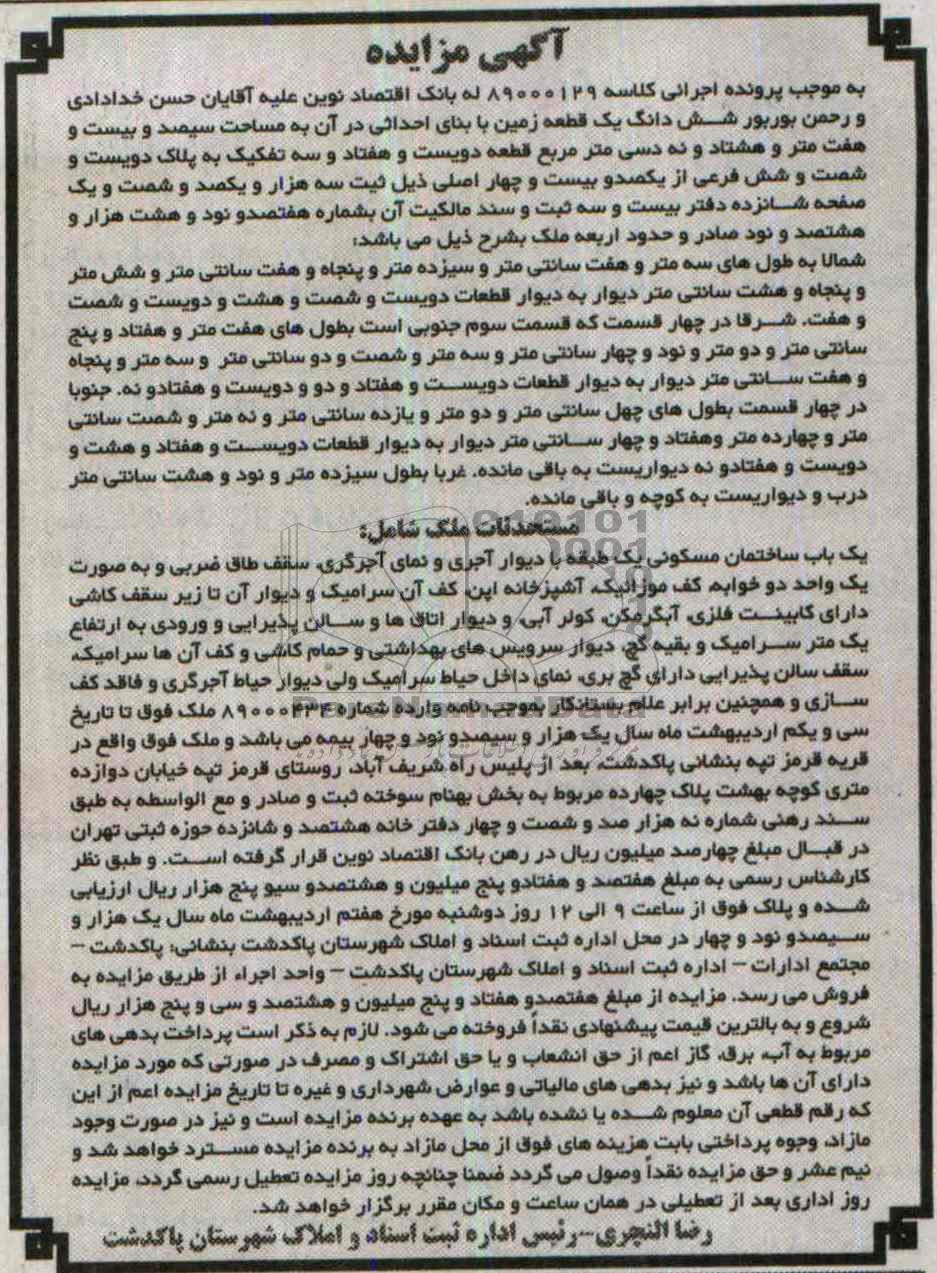 آگهی مزایده
به موجب پرونده اجرائی کلاسه ۸۹۰۰۰۱۲۹ له بانک اقتصاد نوین علیه آقایان حسن خدادادی
و رحمن بوربور شش دانگ یک قطعه زمین با بنای احداثی در آن به مساحت سیصد و بیست و
هفت متر و هشتاد و نه دسی متر مربع قطعه دویست و هفتاد و سه تفکیک به پلاک دویست و
شصت و شش فرعی از یکصدو بیست و چهار اصلی ذیل ثبت سه هزار و یکصد و شصت و یک
صفحه شانزده دفتر بیست و سه ثبت و سند مالکیت آن بشماره هفتصدو نود و هشت هزار و
هشتصد و نود صادر و حدود اربعه ملک بشرح ذیل می باشد:
شمالا به طول های سه متر و هفت سانتی متر و سیزده متر و پنجاه و هفت سانتی متر و شش متر
و پنجاه و هشت سانتی متر دیوار به دیوار قطعات دویست و شصت و هشت و دویست و شصت
و هفت. شرقا در چهار قسمت که قسمت سوم جنوبی است بطول های هفت متر و هفتاد و پنج
سانتی متر و دو متر و نود و چهار سانتی متر و سه متر و شصت و دو سانتی متر و سه متر و پنجاه
و هفت سانتی متر دیوار به دیوار قطعات دویست و هفتاد و دو و دویست و هفتادو نه. جنوبا
در چهار قسمت بطول های چهل سانتی متر و دو متر و یازده سانتی متر و نه متر و شصت سانتی
متر و چهارده متر وهفتاد و چهار سانتی متر دیوار به دیوار قطعات دویست و هفتاد و هشت و
دویست و هفتادو نه دیواریست به باقی مانده. غربا بطول سیزده متر و نود و هشت سانتی متر
درب و دیواریست به کوچه و باقی مانده.
مستحدثات ملک شامل:
یک باب ساختمان مسکونی یک طبقه با دیوار آجری و نمای آجرگری، سقف طاق ضربی و به صورت
یک واحد دو خوابه، کف موزائیک، آشپزخانه اپن، کف آن سرامیک و دیوار آن تا زیر سقف کاشی
دارای کابینت فلزی، آبگرمکن، کولر آبی، و دیوار اتاق ها و سالن پذیرایی و ورودی به ارتفاع
یک متر سرامیک و بقیه گچ، دیوار سرویس های بهداشتی و حمام کاشی و کف آن ها سرامیک،
سقف سالن پذیرایی دارای گچ بری، نمای داخل حیاط سرامیک ولی دیوار حیاط آجرگری و فاقد کف
سازی و همچنین برابر علام بستانکار بموجب نامه وارده شماره ۸۹۰۰۰۴۳۴ ملک فوق تا تاریخ
سی و یکم اردیبهشت ماه سال یک هزار و سیصدو نود و چهار بیمه می باشد و ملک فوق واقع در
قریه قرمز تپه بنشانی پاکدشت، بعد از پلیس راه شریف آباد، روستای قرمز تپه خیابان دوازده
متری کوچه بهشت پلاک چهارده مربوط به بخش بهنام سوخته ثبت و صادر و مع الواسطه به طبق
سند رهنی شماره نه هزار صد و شصت و چهار دفتر خانه هشتصد و شانزده حوزه ثبتی تهران
در قبال مبلغ چهارصد میلیون ریال در رهن بانک اقتصاد نوین قرار گرفته است. و طبق نظر
کارشناس رسمی به مبلغ هفتصد و هفتادو پنج میلیون و هشتصدو سیو پنج هزار ریال ارزیابی
شده و پلاک فوق از ساعت ۹ الی ۱۲ روز دوشنبه مورخ هفتم اردیبهشت ماه سال یک هزار و
سیصدو نود و چهار در محل اداره ثبت اسناد و املاک شهرستان پاکدشت بنشانی: پاکدشت –
مجتمع ادارات – اداره ثبت اسناد و املاک شهرستان پاکدشت – واحد اجراء از طریق مزایده به
فروش می رسد. مزایده از مبلغ هفتصدو هفتاد و پنج میلیون و هشتصد و سی و پنج هزار ریال
شروع و به بالترین قیمت پیشنهادی نقداً فروخته می شود. لازم به ذکر است پرداخت بدهی های
مربوط به آب، برق، گاز اعم از حق انشعاب و یا حق اشتراک و مصرف در صورتی که مورد مزایده
دارای آن ها باشد و نیز بدهی های مالیاتی و عوارض شهرداری و غیره تا تاریخ مزایده اعم از این
که رقم قطعی آن معلوم شده یا نشده باشد به عهده برنده مزایده است و نیز در صورت وجود
مازاد، وجوه پرداختی بابت هزینه های فوق از محل مازاد به برنده مزایده مسترد خواهد شد و
نیم عشر و حق مزایده نقداً وصول می گردد ضمنا چنانچه روز مزایده تعطیل رسمی گردد، مزایده
روز اداری بعد از تعطیلی در همان ساعت و مکان مقرر برگزار خواهد شد.
رضا النچری–رئیس اداره ثبت اسناد و املاک شهرستان پاکدشت